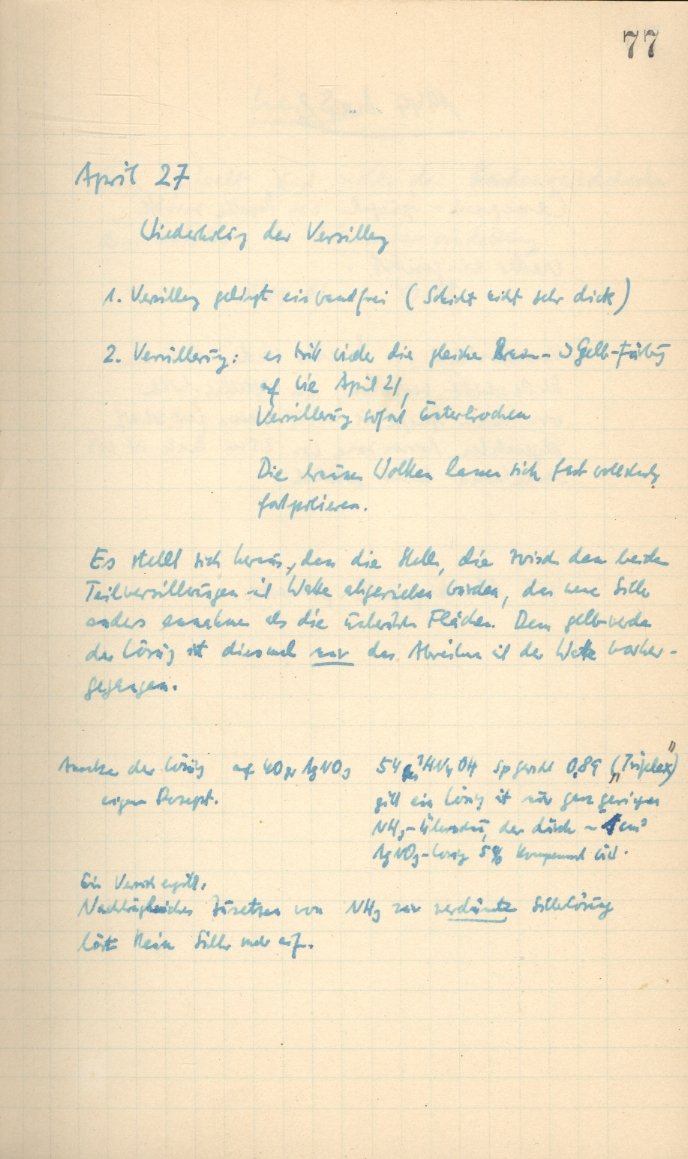 77
April 27
Wiederholung der Versilberung
1. Versilberung gelingt einwandfrei (Schicht nicht sehr dick)
2. Versilberung: es tritt wieder die gleiche Braun- Gelb-Färbung
auf wie April 21,
Versilberung sofort unterbrochen
Die braunen Wolken lassen sich fast vollständig
fortpolieren.
Es stellt sich heraus, dass die Stelle, die zwischen den beiden
Teilversilberungen mit Watte abgerieben worden, das neue Silber
anders annehmen als die Flächen. Dem gelbwerden
der Lösung ist diesmal nur das Abreiben mit der Watte vorher-
gegangen.
Ansetzen der Lösung auf 40 gr AgNO3 54 cm3 NH4OH Sp gewicht 0,89 („Triplex")
eigenes Rezept.
gibt eine Lösung mit nur ganz geringem
NH3-Überschuss, der durch ~ 1 cm3
AgNO3-Lösung 5% kompensiert wird.
Ein Versuch ergibt.
Nachträgliches Zusetzen von NH3 zur verdünnten Silberlösung
löst kein Silber mehr auf.